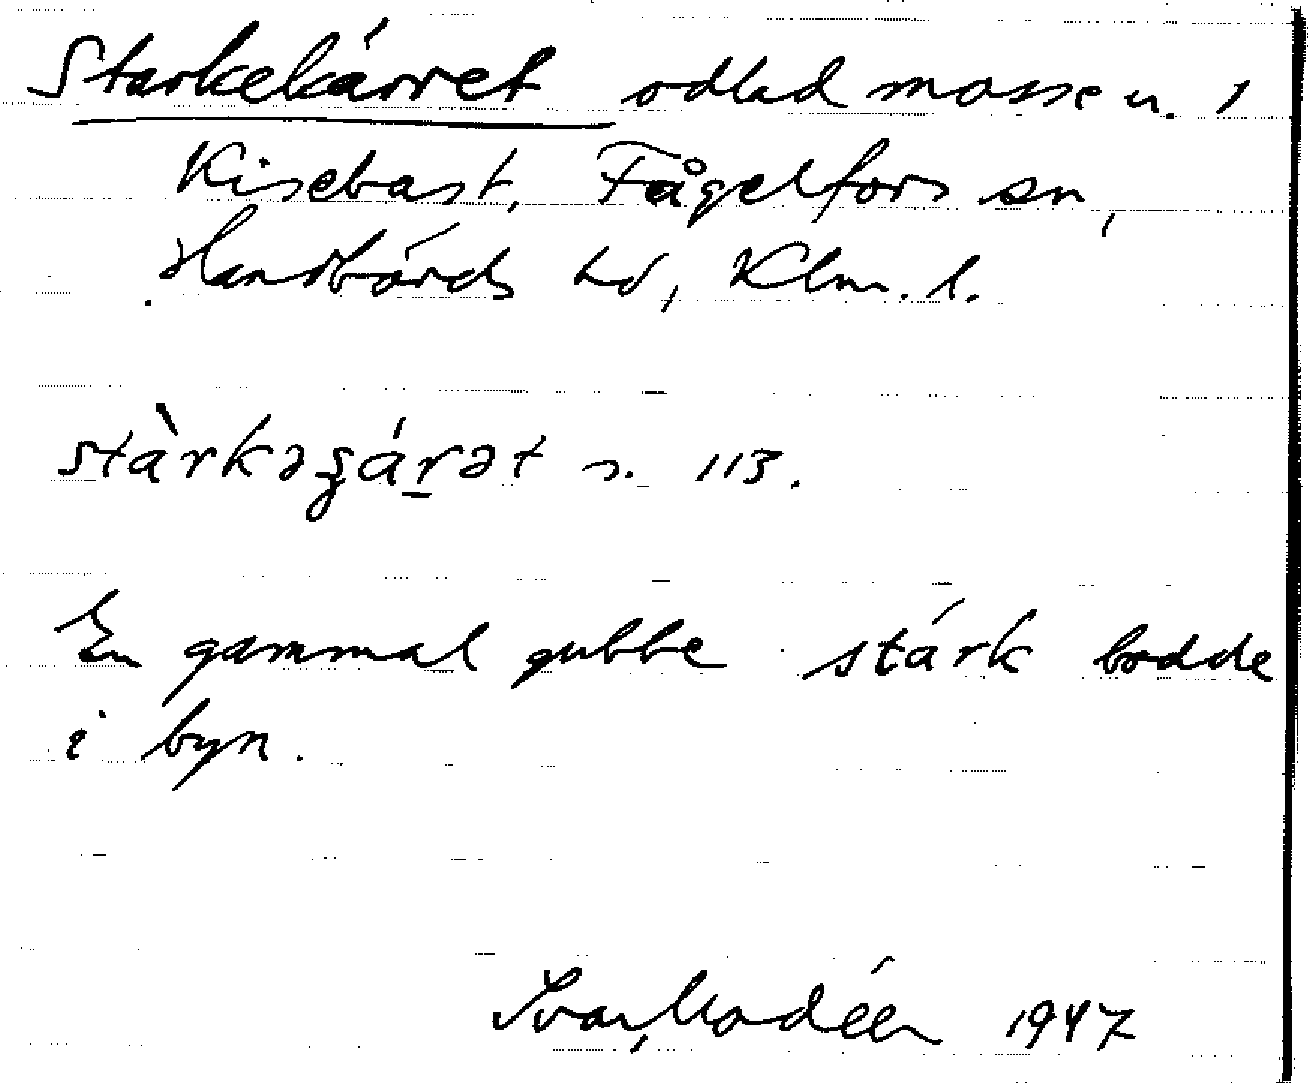 Starkekärret odlad mosse u. 1
Kisebast, Fågelfors sn,
Handbörds hd, Klm. l.
stàrkəʂáṟət n. 113.
En gammal gubbe stark bodde
i byn.
Ivar Modéer 1947